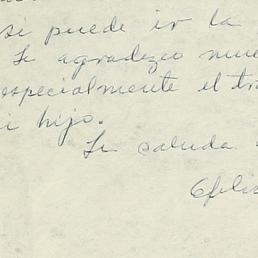 si puede ir la
Le agradezco mu
especialmente el tr
i hijo.
Le saluda